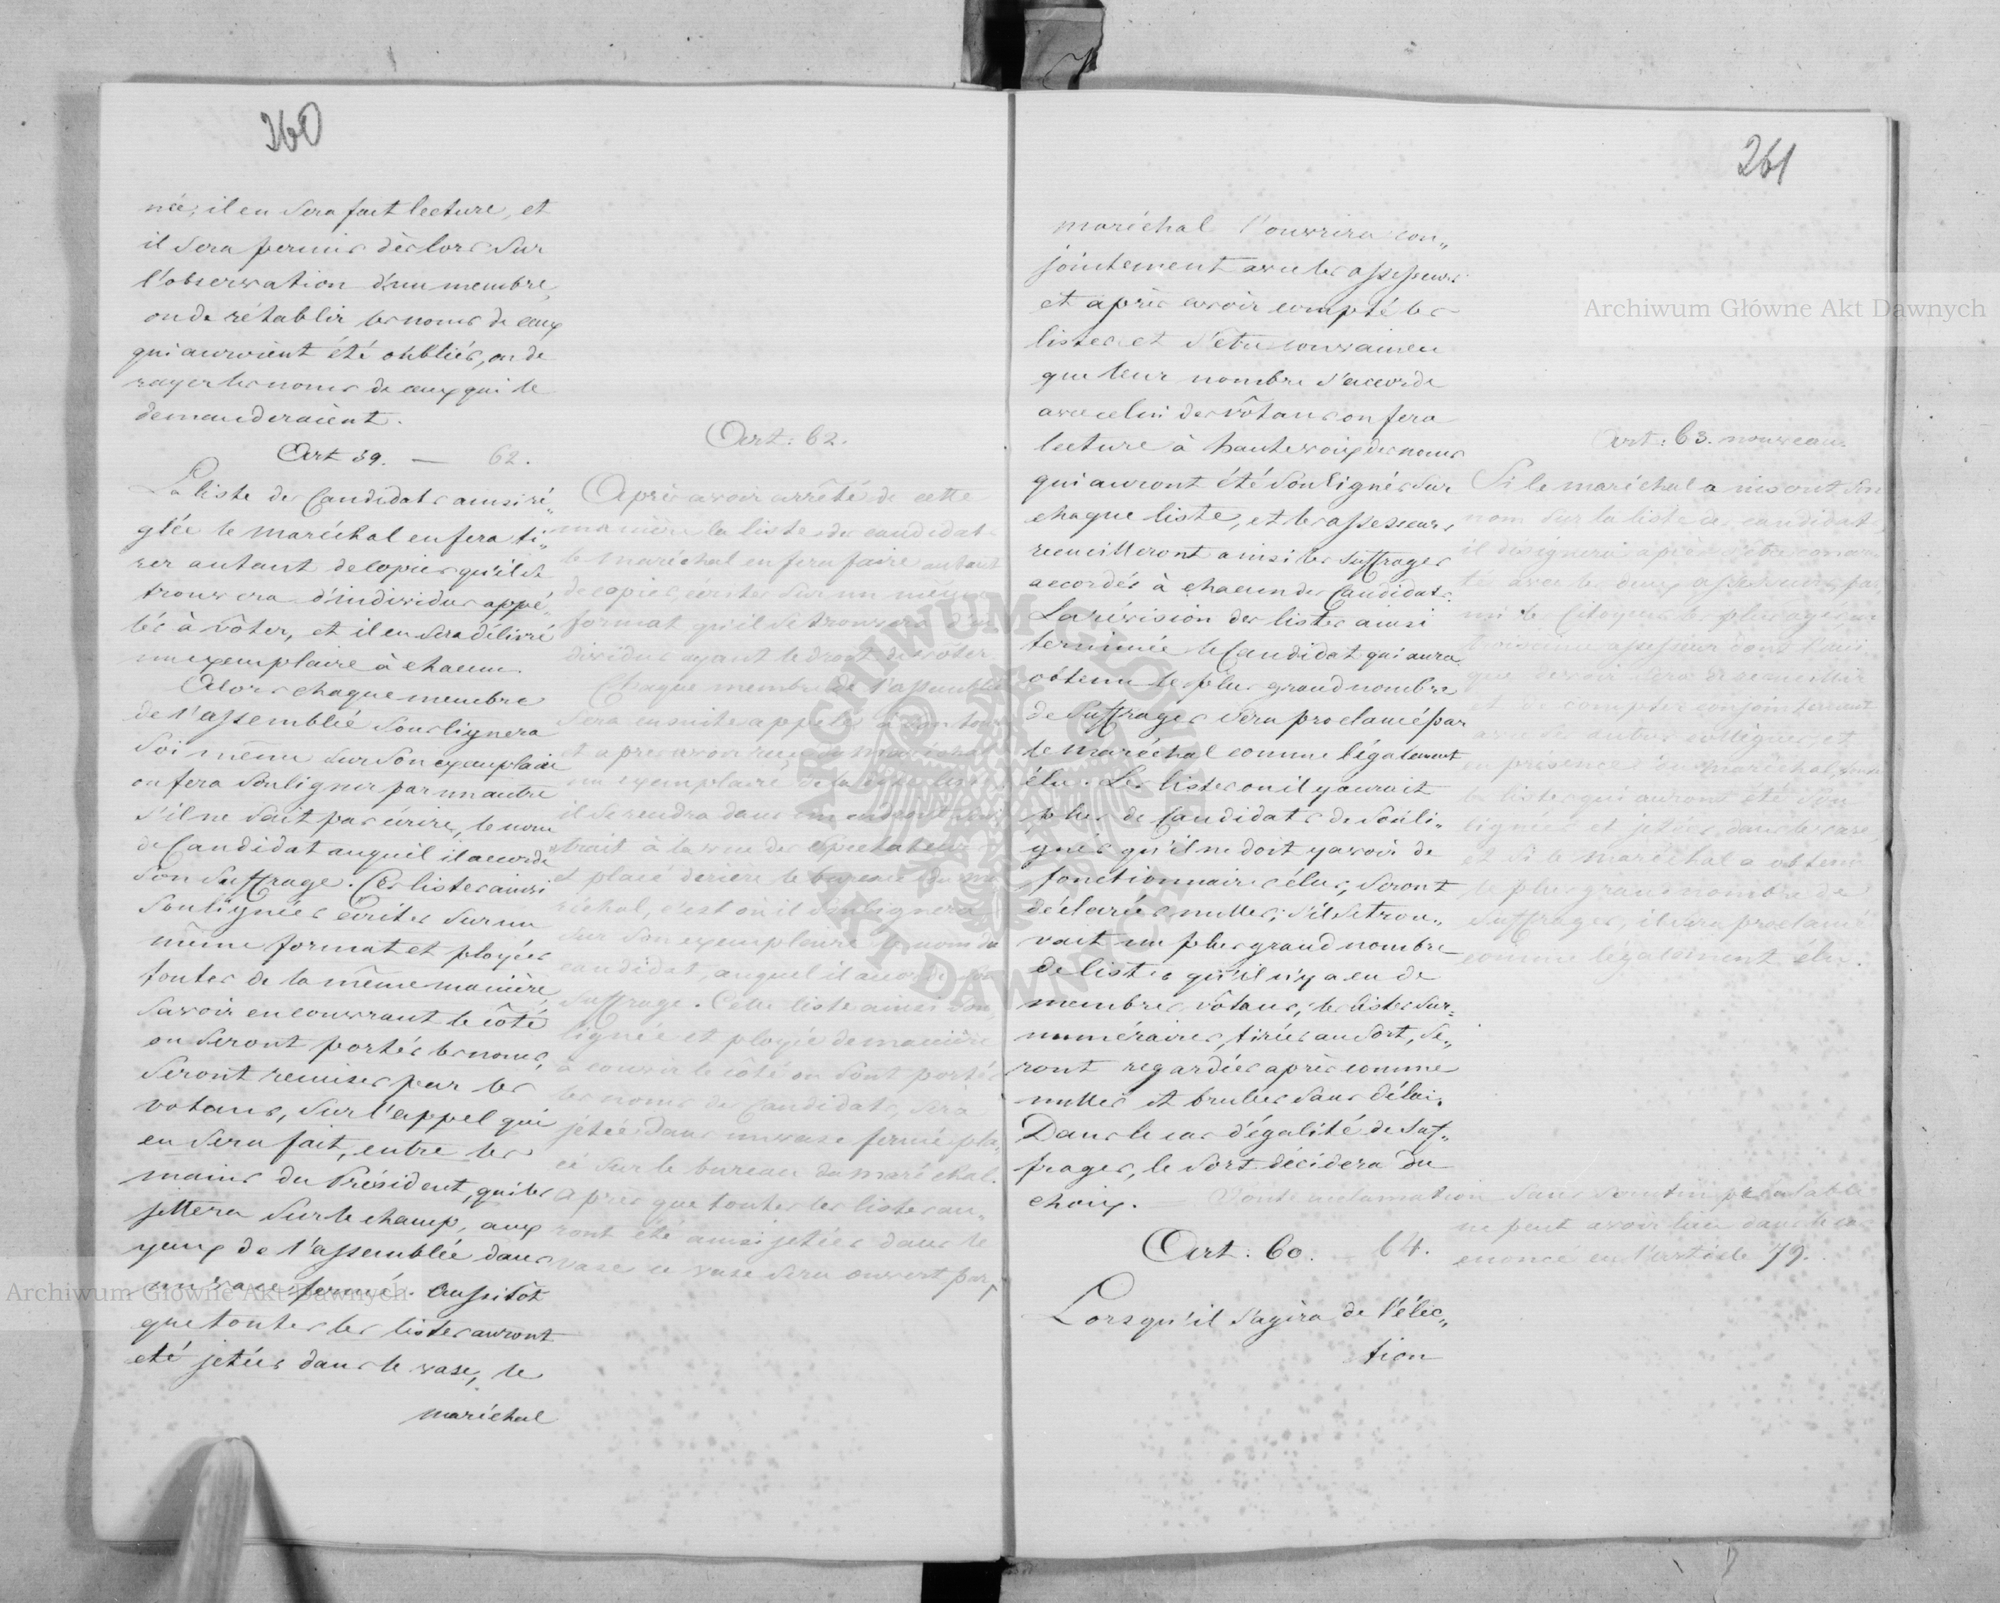 260
née, il en sera fait lecture, et
il sera permis dès lors sur
l'observation d'un membre,
ou de rétablir les noms de ceux
qui auroient été oubliés, ou de
rayer les noms de ceux qui le
demanderaient.
Art 59. — 62.
La liste des Candidats ainsi ré„
glée le maréchal en fera ti„
rer autant de copies qu'il se
trouvera d'individus appé„
lés à vôter, et il en sera délivré
un exemplaire à chacun.
Alors chaque membre
de l'assemblée souslignera
soi même sur son exemplaire
ou fera souligner par un autre
s'il ne sait pas écrire, le nom
de Candidat auquel il accorde
son suffrage. Ces listes ainsi
soulignées écrites sur un
même format et ployées
toutes de la même manière
savoir en couvrant le côté
ou seront portés les noms,
seront remises par les
votans, sur l'appel qui
en sera fait, entre les
mains du Président, qui les
jettera sur le champ, aux
yeux de l'assemblée dans
un vase fermé. Aussitôt
que toutes les listes auront
eté jetées dans le vase, le
maréchal
Art: 62.
Après avoir arrêté de cette
manière la liste des candidats
le maréchal en fera faire autant
de copies, écrites sur un même
format qu'il se trouvera d'in
dividus ayant le droit de voter
Chaque membre de l'assemblée
sera ensuite appelé à son tour
et après avoir reçu du maréchal
un exemplaire de la
il se rendra dans un endroit
trait à la vue des spectateurs
et placé derière le bureau du ma
réchal, c'est où il soulignera
sur son exemplaire le nom du
candidat, auquel il accorde son
suffrage. Cette liste ainsi sou„
lignée et ployée de manière
à couvrir le côté ou sont portés
les noms des Candidats, sera
jetée dans un vase fermé pla„
cé sur le bureau du maréchal.
Après que toutes les listes au„
ront été ainsi jetées dans le
vase ce vase sera ouvert par
261
maréchal l'ouvrira con„
jointement avec les assesseurs
et après avoir compté les
listes et s'être convaincu
que leur nombre s'accorde
avec celui des vôtans on fera
lecture à haute voix des noms
qui auront été soulignés sur
chaque liste, et les assesseurs
recueilleront ainsi les suffrages
accordés à chacun des Candidats.
La révision des listes ainsi
terminée le Candidat qui aura
obtenu le plus grand nombre
de suffrages sera proclamé par
le maréchal comme légalement
élu. Les listes ou il y aurait
plus de Candidats de souli„
gnés qu'il ne doit y avoir de
fonctionnaires élus, seront
déclarées nulles; s'il se trou„
vait un plus grand nombre
de listes qu'il n'y a eu de
membres vôtans, les listes sur„
numéraires, tirées au sort, se„
ront regardées après comme
nulles et brulées sans délai.
Dans le cas d'égalité de suf„
frages, le sort décidera du
choix.
Art: 60. — 64.
Lorsqu'il s'agira de l'élec„
tion
Art: 63. nouveau
Si le maréchal a inscrit son
nom sur la liste des candidats
il désignera après s'être concer
té avec les deux assesseurs par
mi les Citoyens les plus agés un
troisième assesseur dont l'uni
que devoir sera de recueillir
et de compter conjointement
avec ses autres collègues et
en présence du maréchal, toutes
les listes qui auront été sou
lignées et jetées dans le vase,
et si le maréchal a obtenu
le plus grand nombre de
suffrages, il sera proclamé
comme légalement élu.
Toute acclamation sans scrutin préalable
ne peut avoir lieu dans le cas
enoncé en l'article 79.
Archiwum Główne Akt Dawnych
Archiwum Główne Akt Dawnych
ARCHIWUM GŁÓWNE AKT DAWNYCH